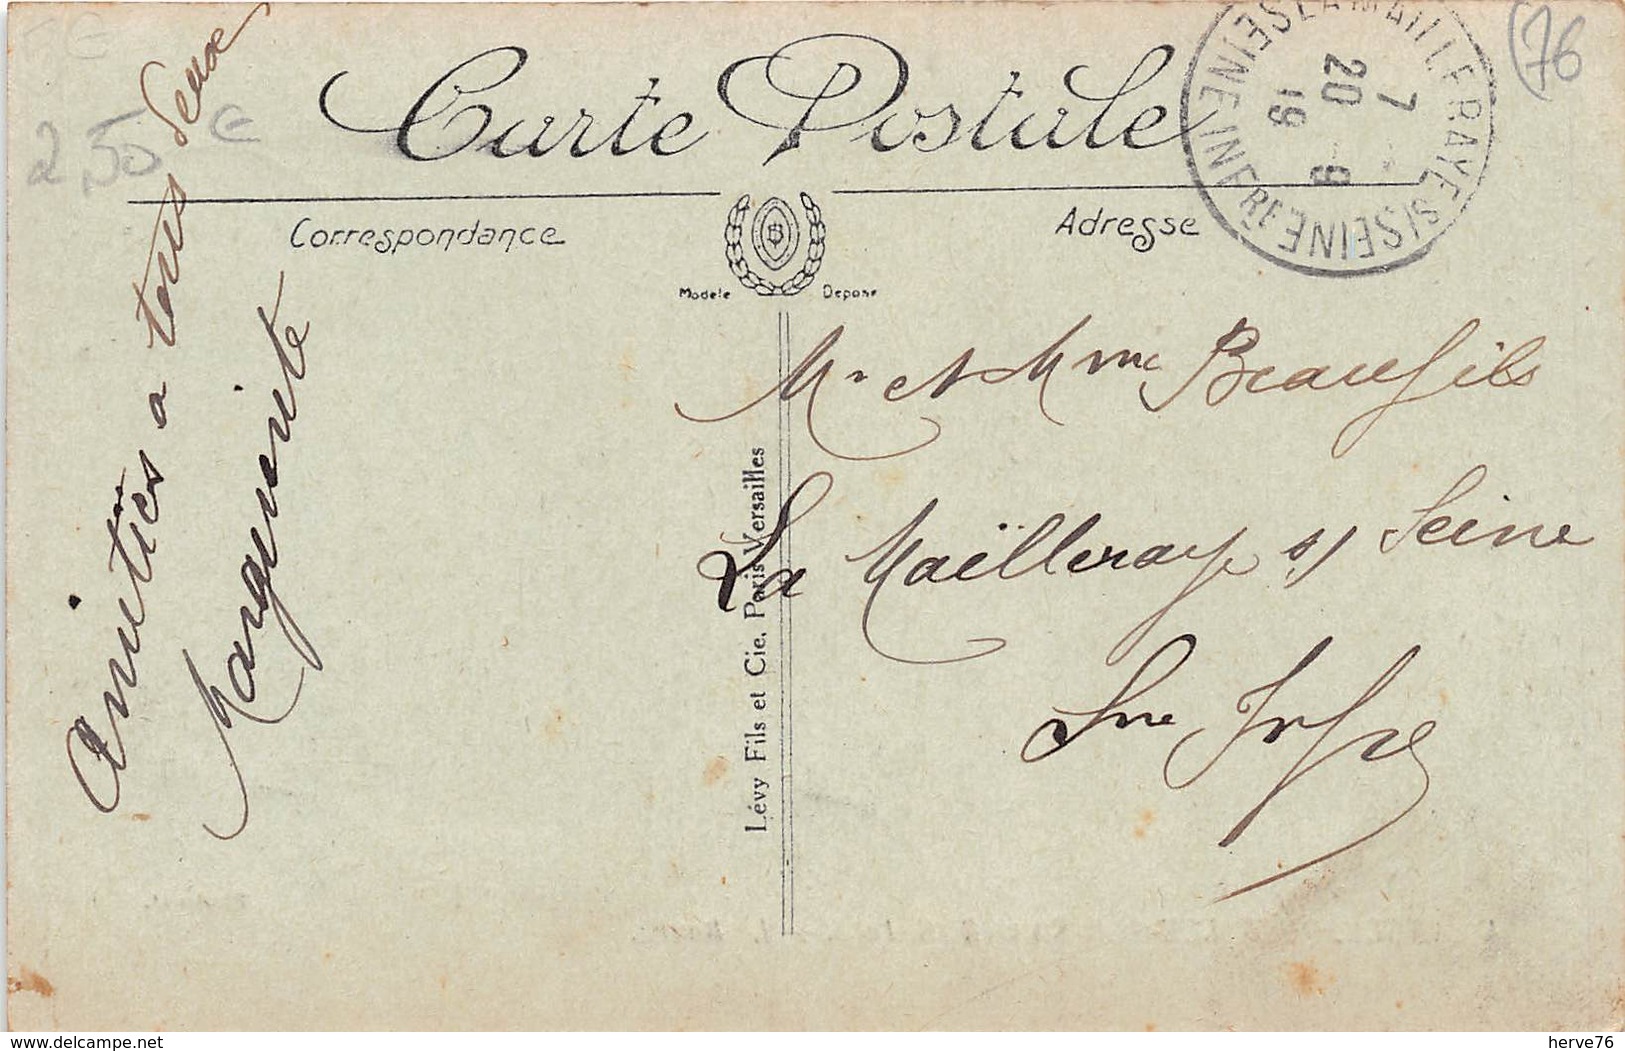 (76
2,50 €
Carte Postale
Correspondance
Adresse
Modèle Déposé
LA MAILLERAYE S/SEINE
SEINE INFRE
7
20 - 9
19
Amitiés a tous deux
Marguerite
Mr et Mme Beaufils
La Maïlleraye s/ Seine
Sne Infre
Lévy Fils et Cie. Paris-Versailles
www.delcampe.net
herve76